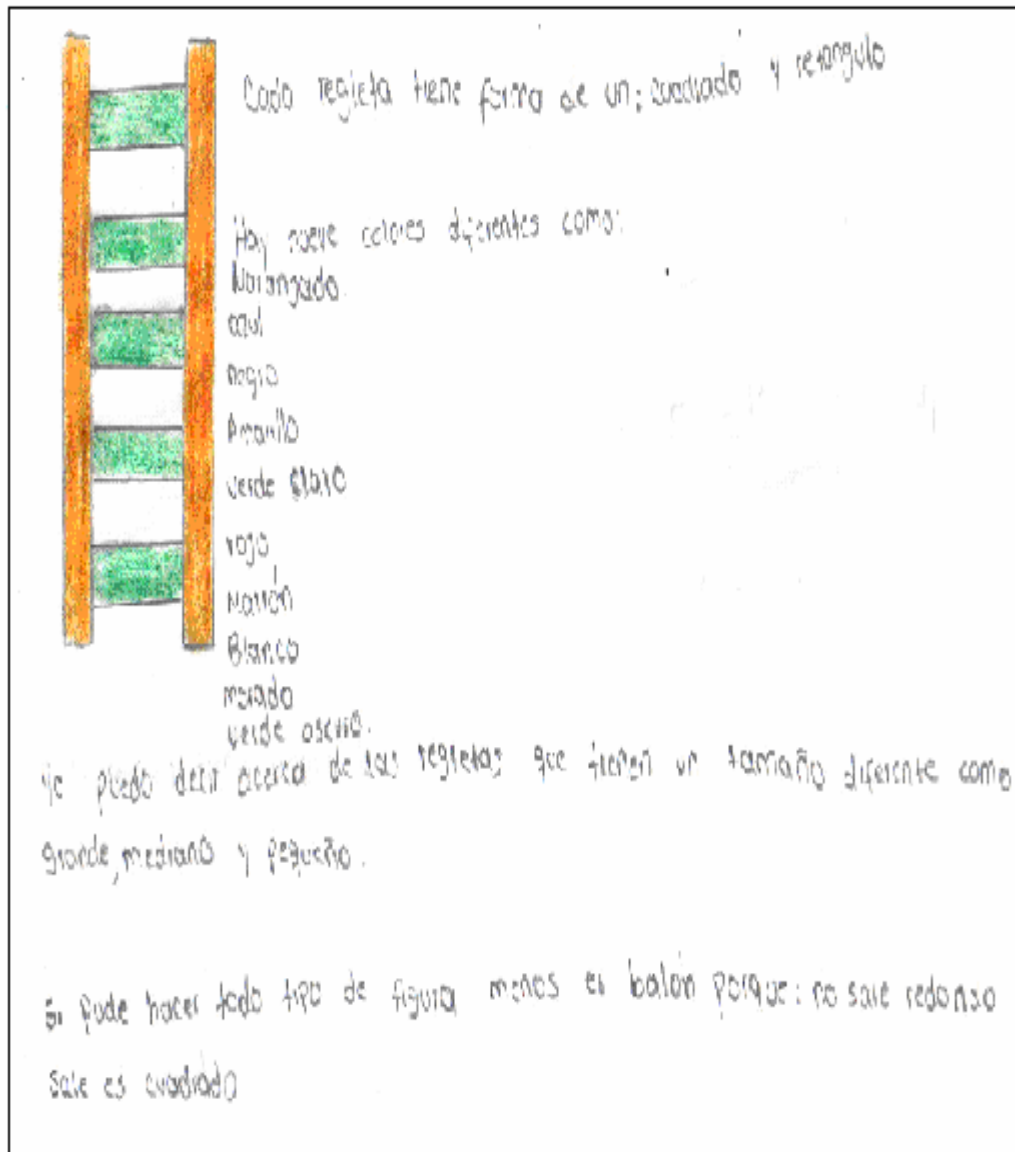 Cada regleta tiene forma de un; cuadrado y retangulo
Hay nueve colores diferentes como:
Narangado.
azul
negro
Amarillo
verde claro
rojo
Marrón
Blanco
morado
verde oscuro.
Yo puedo decir acerca de las regletas que tienen un tamaño diferente como
grande, mediano y pequeño.
Si pude hacer todo tipo de figura menos el balón porque: no sale redonso
sale es cuadrado